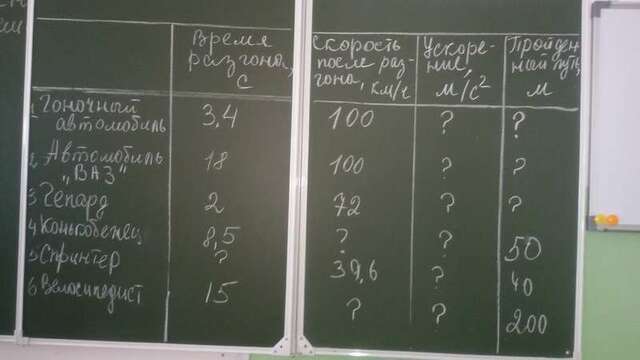 Время разгона, с
Скорость после разгона, км/ч
Ускорение, м/с²
Пройденный путь, м
1 Гоночный автомобиль 3,4 100 ? ?
2 Автомобиль "ВАЗ" 18 100 ? ?
3 Гепард 2 72 ? ?
4 Конькобежец 8,5 ? ? 50
5 Спринтер ? 39,6 ? 40
6 Велосипедист 15 ? ? 200